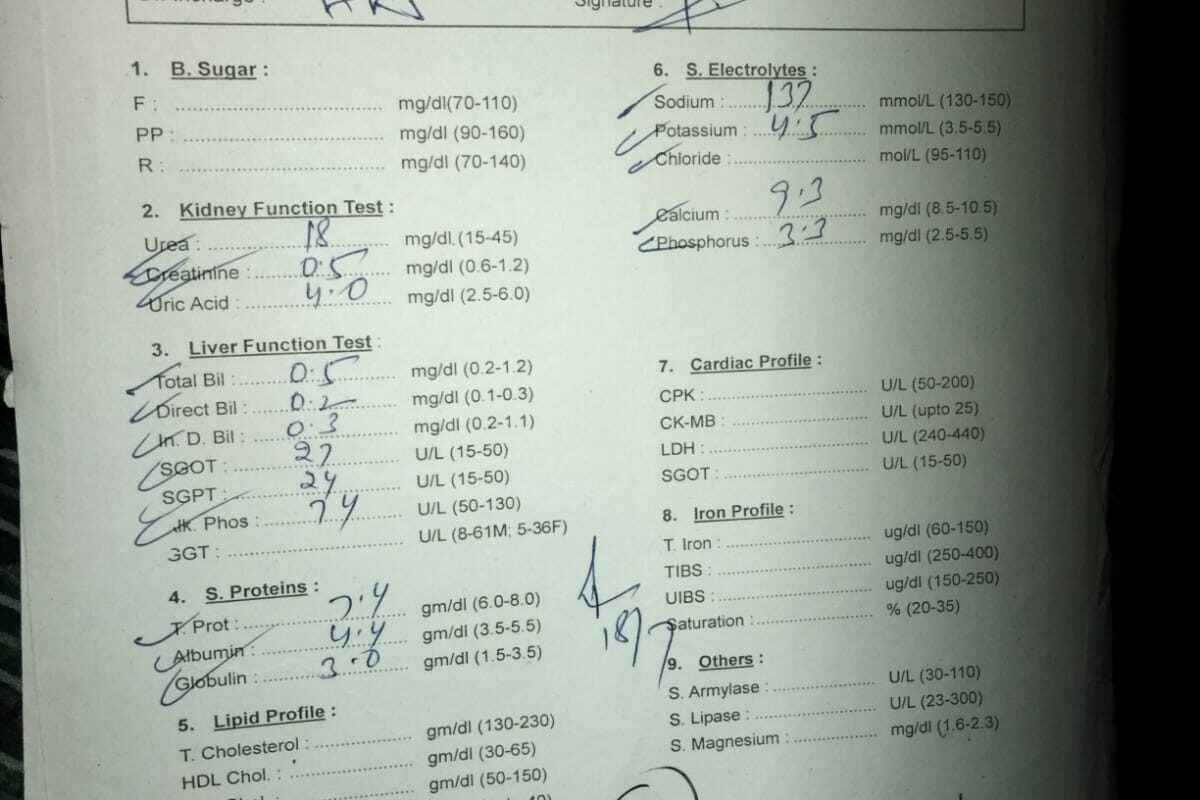 Signature :
1. B. Sugar :
F : mg/dl(70-110)
PP : mg/dl (90-160)
R : mg/dl (70-140)
2. Kidney Function Test :
Urea : 18 mg/dl. (15-45)
Creatinine : 0.5 mg/dl (0.6-1.2)
Uric Acid : 4.0 mg/dl (2.5-6.0)
3. Liver Function Test :
Total Bil : 0.5 mg/dl (0.2-1.2)
Direct Bil : 0.2 mg/dl (0.1-0.3)
In. D. Bil : 0.3 mg/dl (0.2-1.1)
SGOT : 27 U/L (15-50)
SGPT : 24 U/L (15-50)
Alk. Phos : 74 U/L (50-130)
GGT : U/L (8-61M; 5-36F)
4. S. Proteins :
T. Prot : 7.4 gm/dl (6.0-8.0)
Albumin : 4.4 gm/dl (3.5-5.5)
Globulin : 3.0 gm/dl (1.5-3.5)
5. Lipid Profile :
T. Cholesterol : gm/dl (130-230)
HDL Chol. : gm/dl (30-65)
gm/dl (50-150)
6. S. Electrolytes :
Sodium : 137 mmol/L (130-150)
Potassium : 4.5 mmol/L (3.5-5.5)
Chloride : mol/L (95-110)
Calcium : 9.3 mg/dl (8.5-10.5)
Phosphorus : 3.3 mg/dl (2.5-5.5)
7. Cardiac Profile :
CPK : U/L (50-200)
CK-MB : U/L (upto 25)
LDH : U/L (240-440)
SGOT : U/L (15-50)
8. Iron Profile :
T. Iron : ug/dl (60-150)
TIBS : ug/dl (250-400)
UIBS : ug/dl (150-250)
Saturation : % (20-35)
18/7
9. Others :
S. Armylase : U/L (30-110)
S. Lipase : U/L (23-300)
S. Magnesium : mg/dl (1.6-2.3)